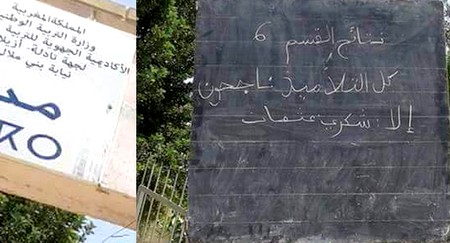 المملكة المغربية
وزارة التربية الوطنية
الأكاديمية الجهوية للتربية
لجهة تادلة- أزيلال
نيابة بني ملال
نتائج القسم 6
كل التلاميذ ناجحون
إلا: شكري عثمان